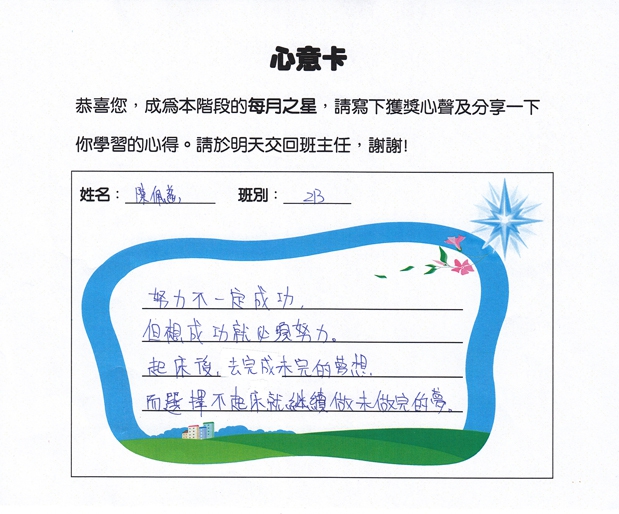 心意卡
恭喜您，成為本階段的每月之星，請寫下獲獎心聲及分享一下
你學習的心得。請於明天交回班主任，謝謝!
姓名：陳佩 班別：2B
努力不一定成功,
但想成功就必須努力。
起床後,去完成未完的夢想,
而選擇不起床就繼續做未做完的夢。